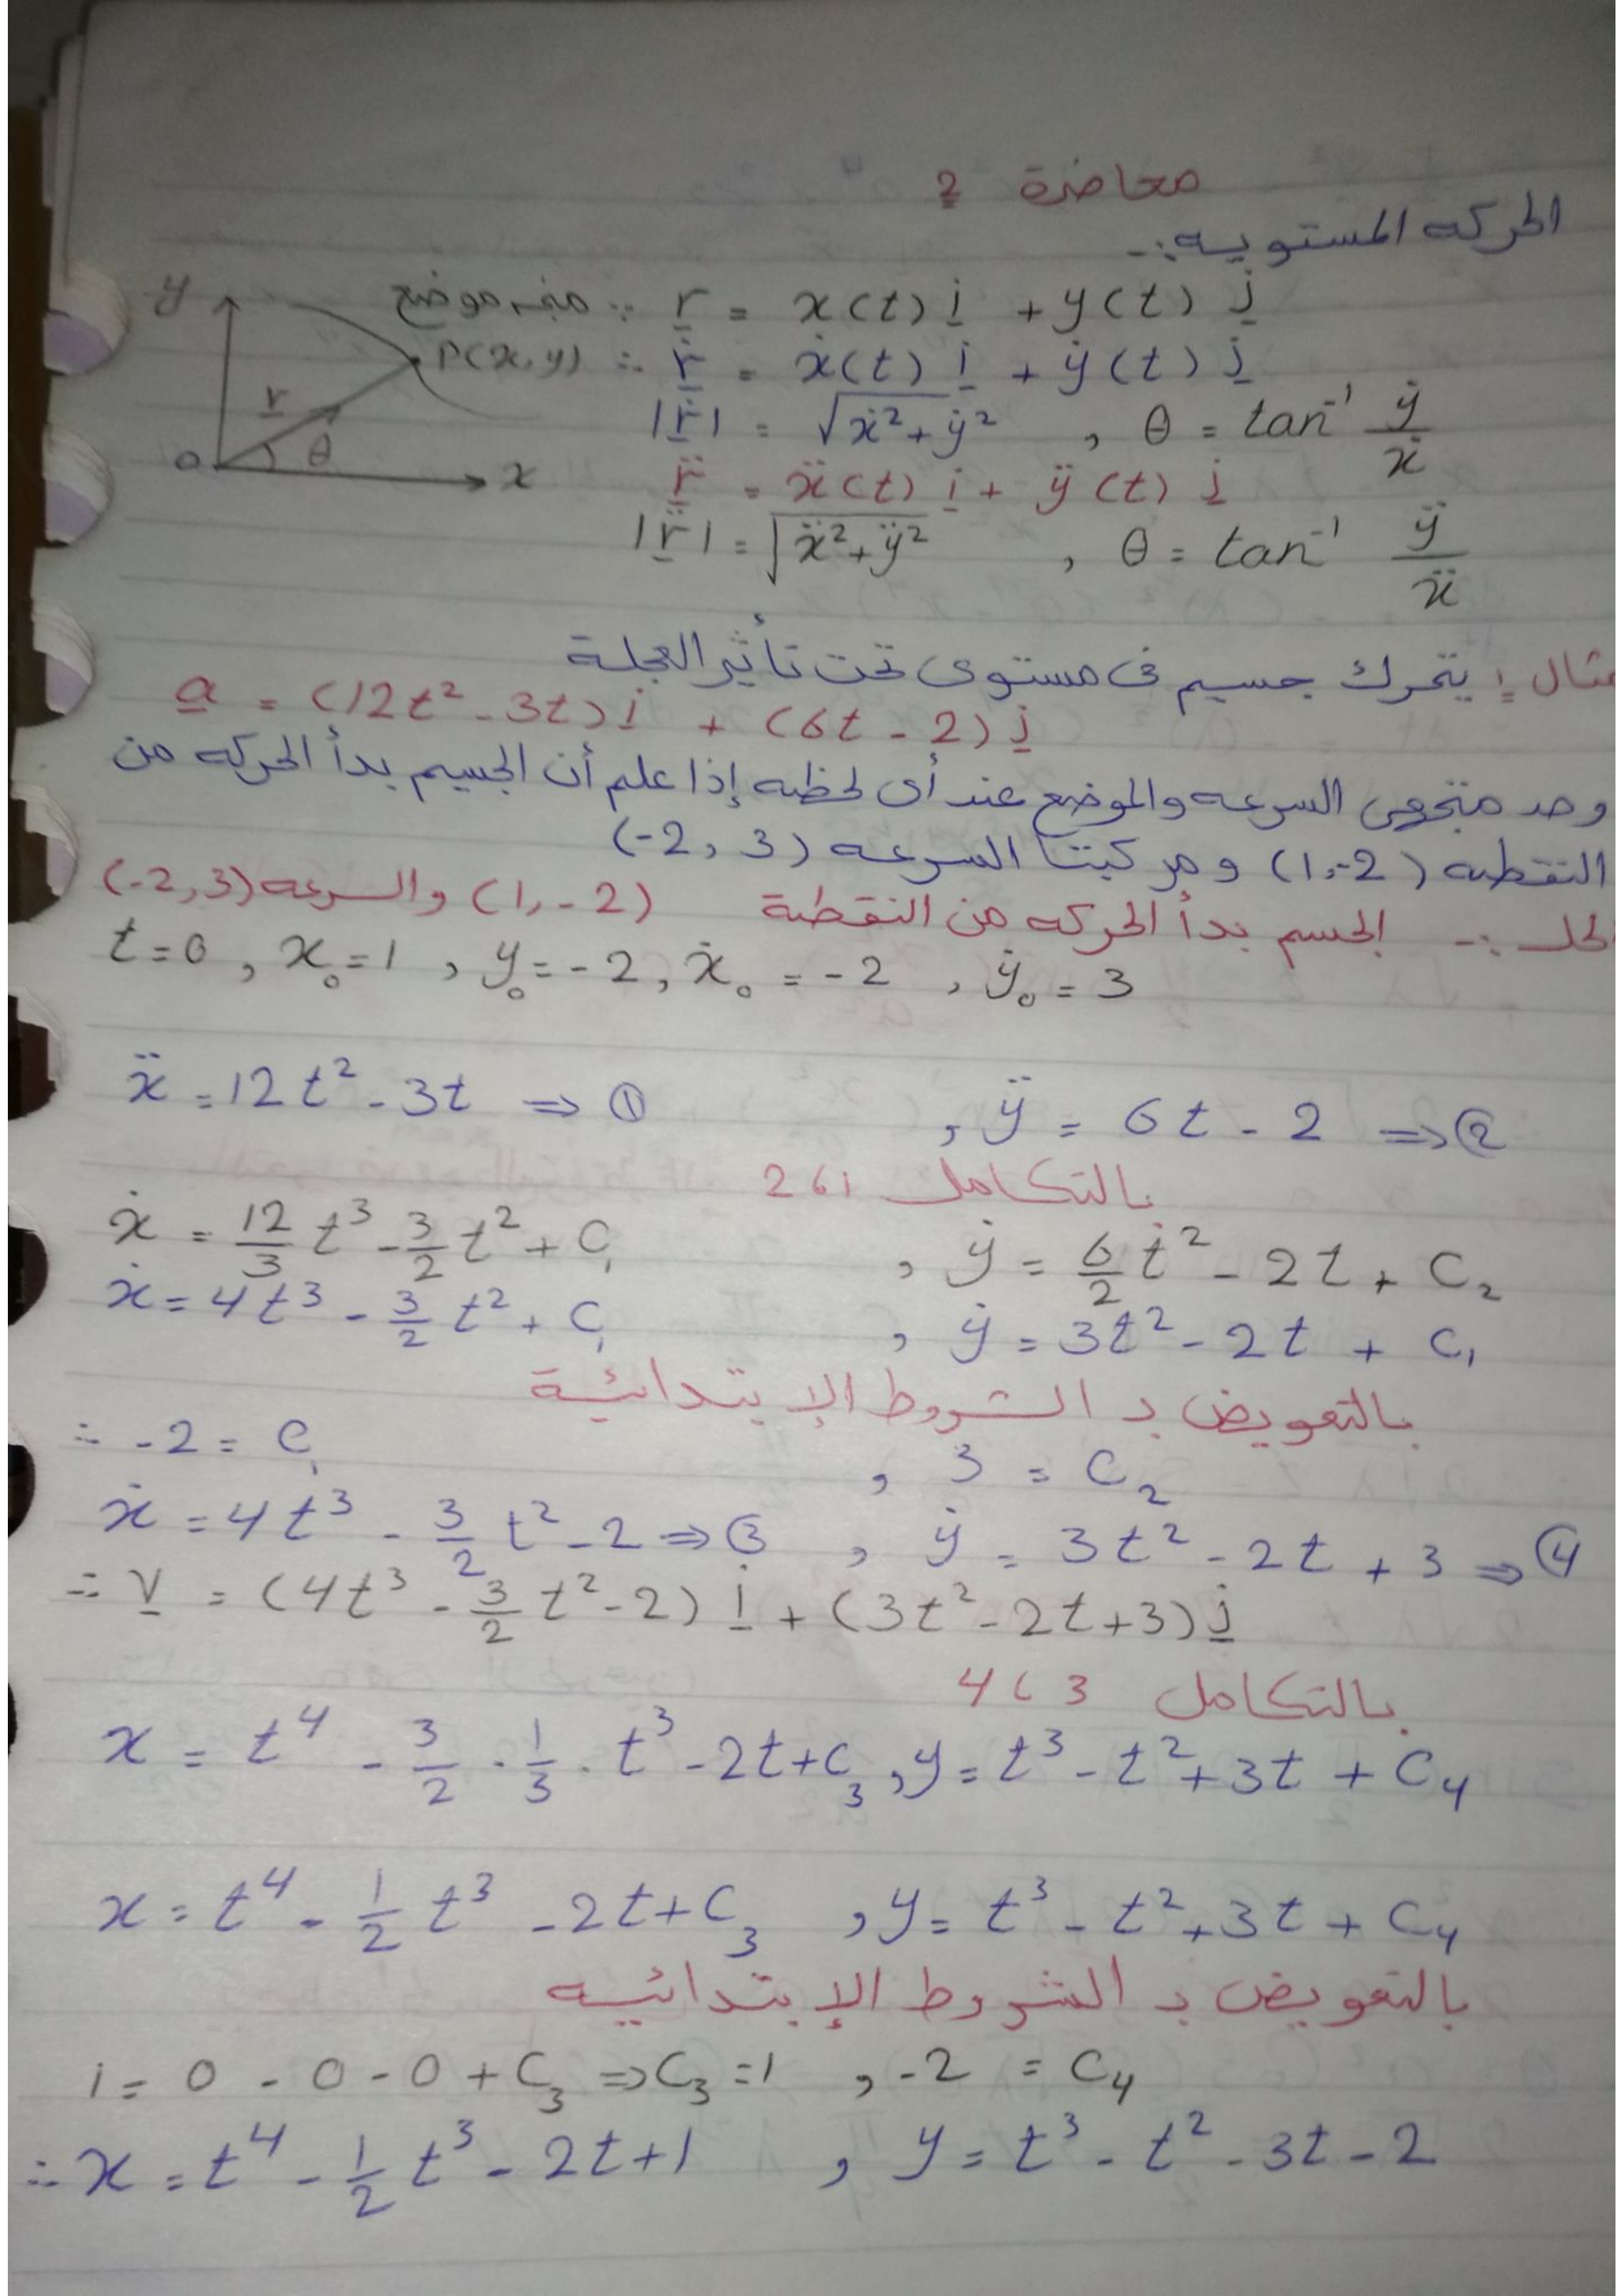 محاضرة 2
الحركه المستويه :-
متجه موضع ∵ r = x(t) i + y(t) j
y
P(x,y) ∴ ṙ = ẋ(t) i + ẏ(t) j
r
|ṙ| = √ẋ²+ẏ² , θ = tan⁻¹ ẏ/ẋ
θ
o x
r̈ = ẍ(t) i + ÿ(t) j
|r̈| = √ẍ²+ÿ² , θ = tan⁻¹ ÿ/ẍ
مثال 1: يتحرك جسيم فى مستوى تحت تأثير العجلة
a = (12t² - 3t) i + (6t - 2) j
وحد متجهى السرعه والموضع عند أى لحظه إذا علم أن الجسيم بدأ الحركه من
النقطه (1,-2) ومركبتا السرعه (-2, 3)
الحل :- الجسم بدأ الحركه من النقطة (1, -2) والسرعه (-2,3)
t=0 , x₀=1 , y₀=-2 , ẋ₀ = -2 , ẏ₀ = 3
ẍ = 12t² - 3t ⇒ ① , ÿ = 6t - 2 ⇒ ②
بالتكامل 1، 2
ẋ = 12/3 t³ - 3/2 t² + C₁ , ẏ = 6/2 t² - 2t + C₂
ẋ = 4t³ - 3/2 t² + C₁ , ẏ = 3t² - 2t + C₁
بالتعويض بـ الشروط الإبتدائية
∴ -2 = C₁ , 3 = C₂
ẋ = 4t³ - 3/2 t² - 2 ⇒ ③ , ẏ = 3t² - 2t + 3 ⇒ ④
∴ V = (4t³ - 3/2 t² - 2) i + (3t² - 2t + 3) j
بالتكامل 3 ، 4
x = t⁴ - 3/2 · 1/3 · t³ - 2t + C₃ , y = t³ - t² + 3t + C₄
x = t⁴ - 1/2 t³ - 2t + C₃ , y = t³ - t² + 3t + C₄
بالتعويض بـ الشروط الإبتدائيه
1 = 0 - 0 - 0 + C₃ ⇒ C₃ = 1 , -2 = C₄
∴ x = t⁴ - 1/2 t³ - 2t + 1 , y = t³ - t² - 3t - 2